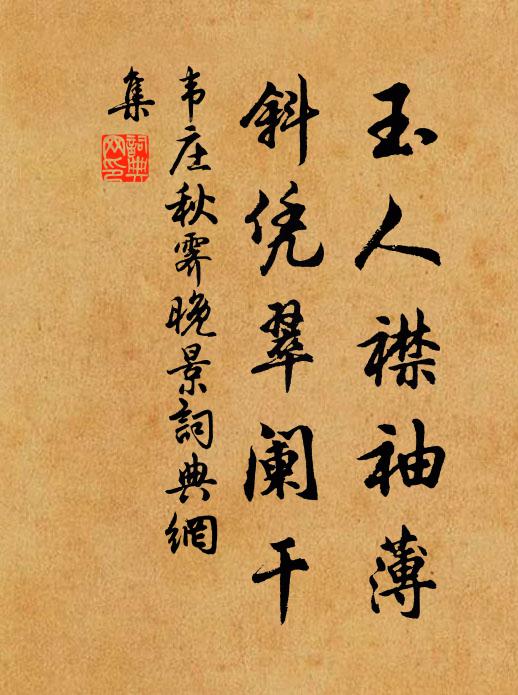 玉人襟袖薄
斜凭翠阑干
韦庄秋霁晚景詞典網
集
詞典网印